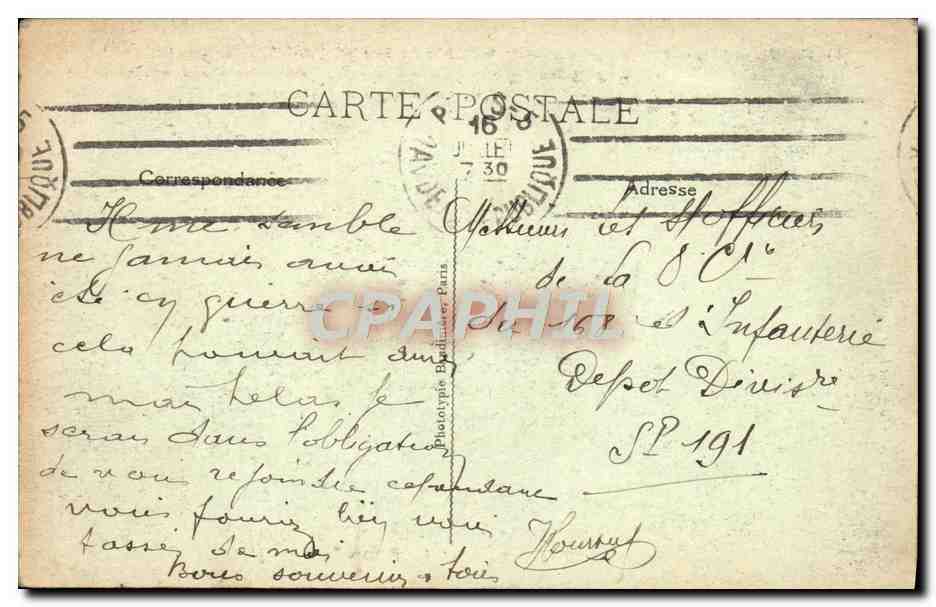 CARTE POSTALE
16
7 30
Correspondance
Adresse
Il me semble
ne jamais avoir
été en guerre si
cela pouvait durer
mais helas je
serais dans l'obligation
de vous rejoindre cependant
vous pouriez bien vous
passez de moi
Bons souvenirs a tous
Messieurs les S/officiers
de la 8 Cie
du 168 e d'Infanterie
Depot Divisre
SP 191
Phototypie Baudinière, Paris
CPAPHIL